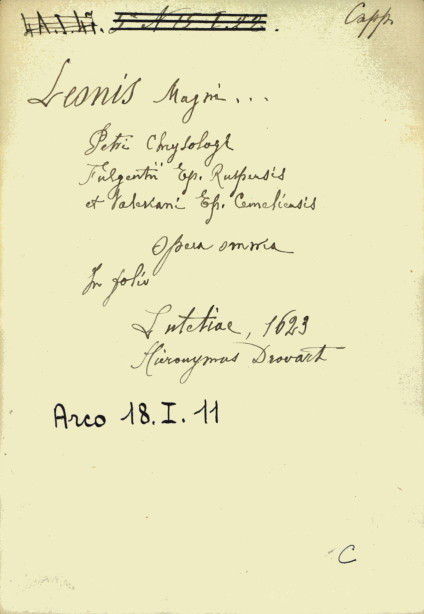 Capp.
Leonis Magni...
Petri Chrysologi
Fulgentii Ep. Ruspensis
et Valeriani Ep. Cemeliensis
Opera omnia
In folio
Lutetiae, 1623
Hieronymus Drovart
Arco 18.I.11
C